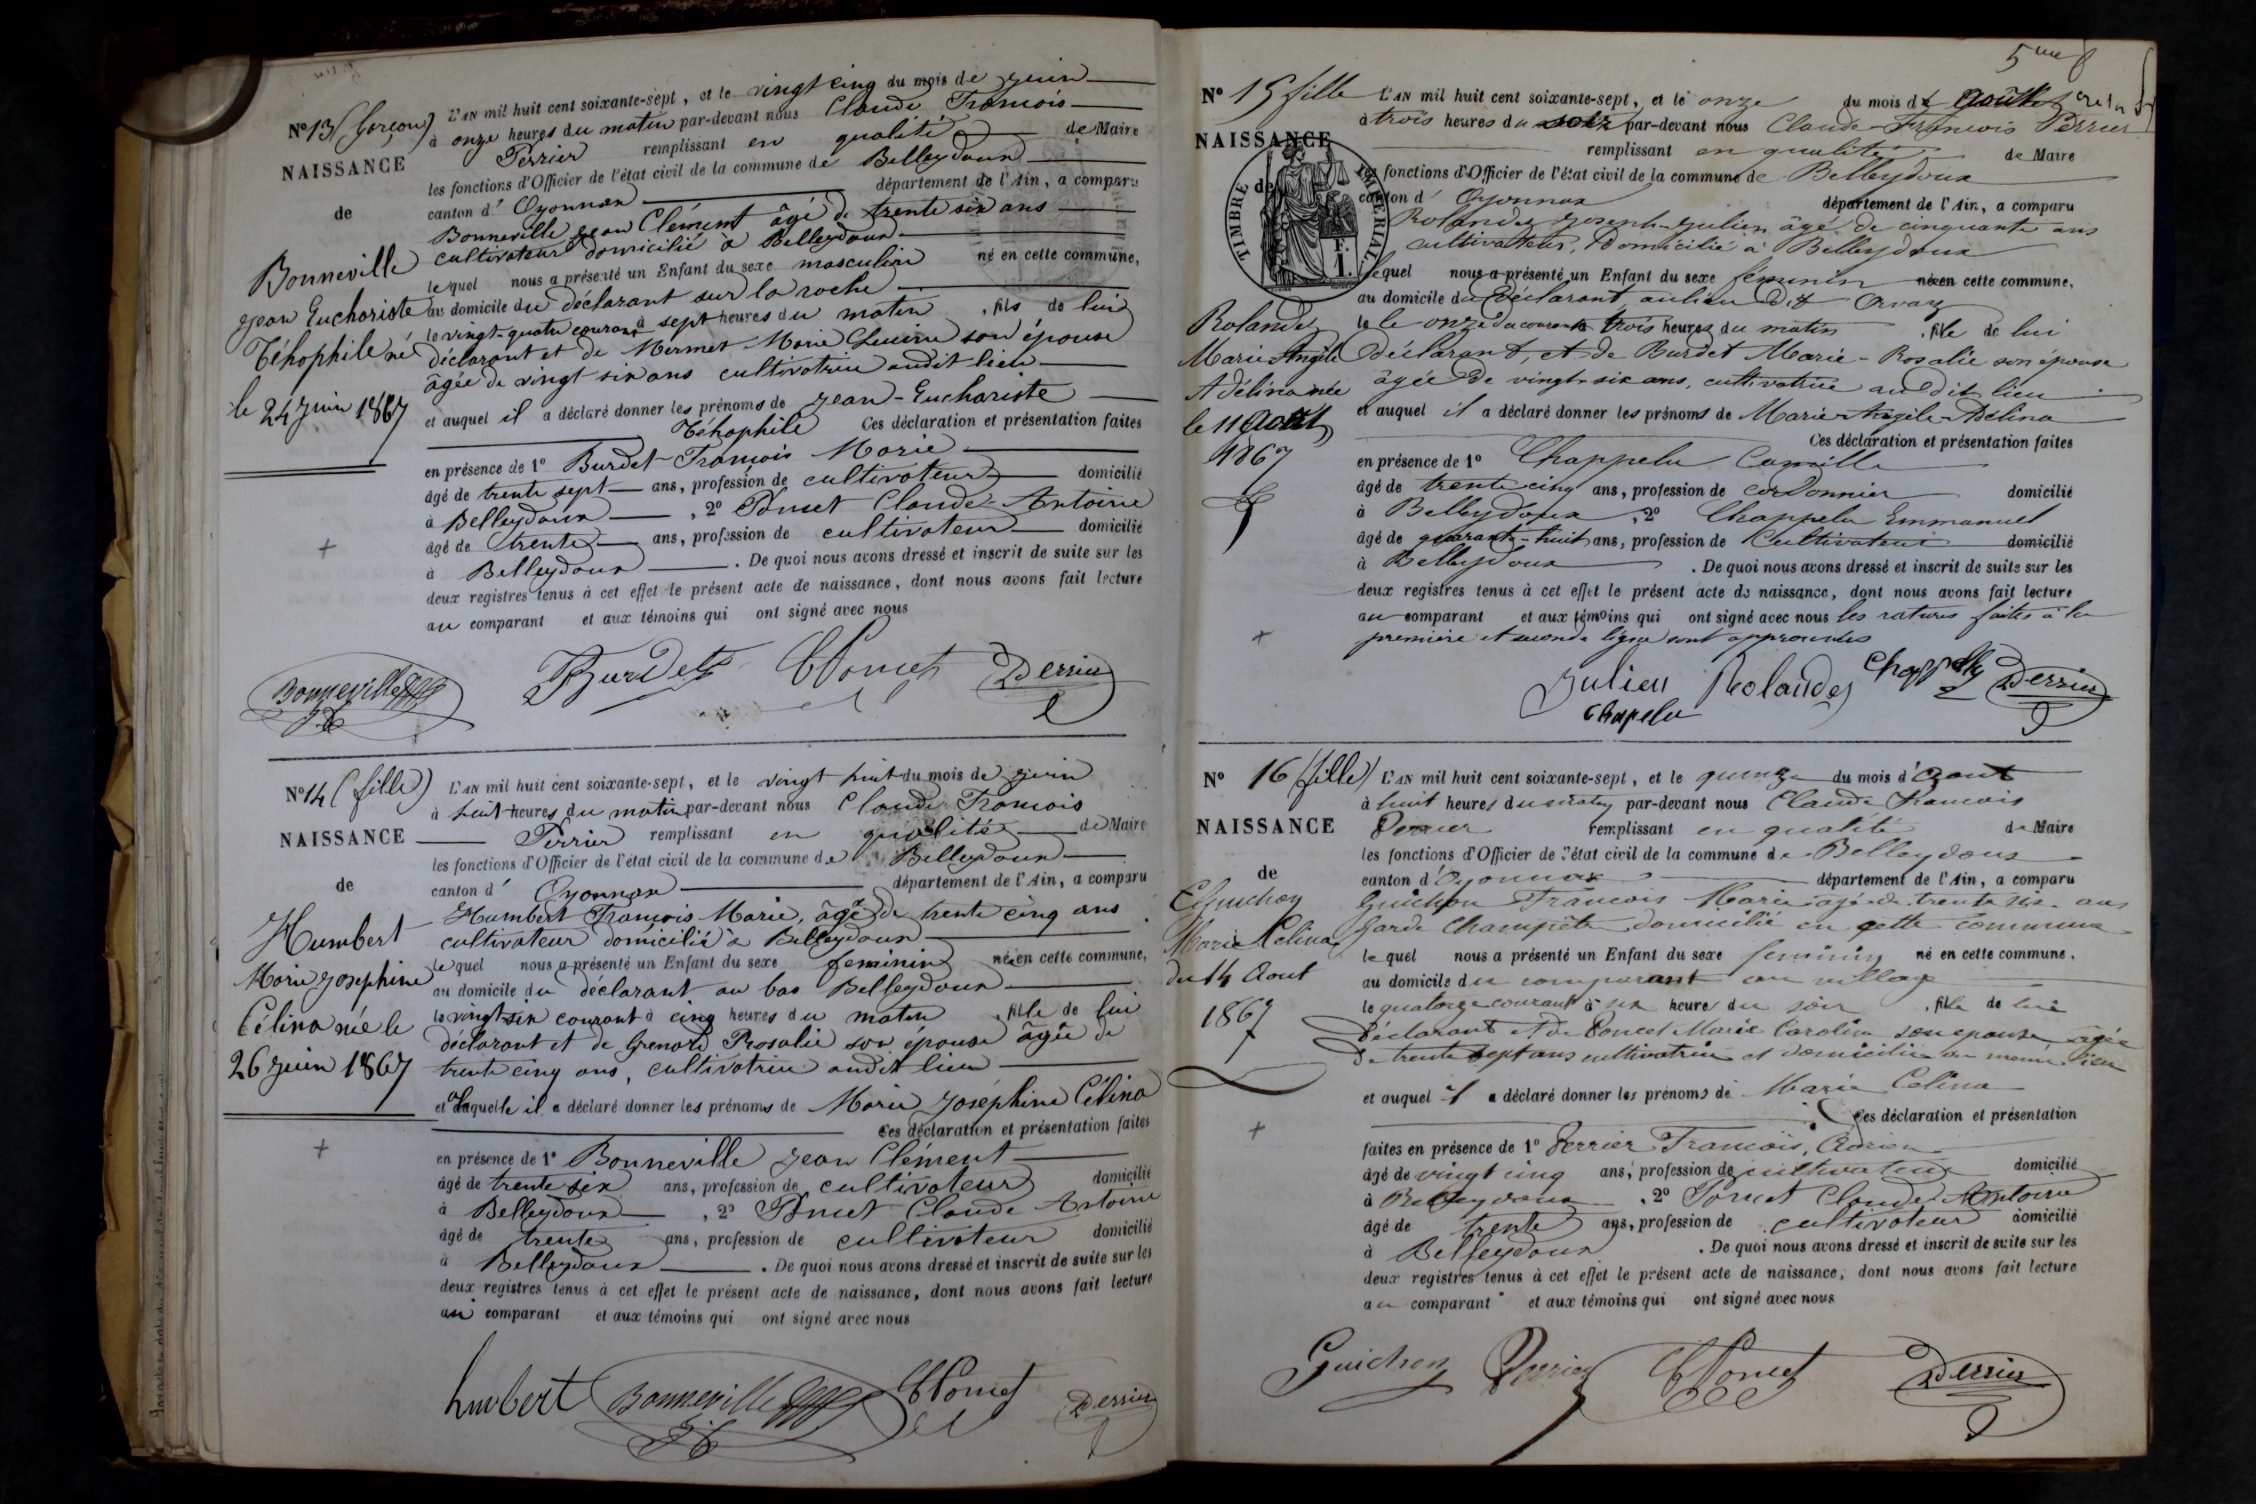 N° 13 (Garçon)
NAISSANCE
de
Bonneville
Jean Euchariste
Téhophile né
le 24 Juin 1867
L'AN mil huit cent soixante-sept, et le vingt cinq du mois de Juin
à onze heures du matin par-devant nous Claude François
Perrier remplissant en qualité de Maire
les fonctions d'Officier de l'état civil de la commune de Belleydoux
canton d' Oyonnax département de l'Ain, a comparu
Bonneville Jean Clément âgé de trente six ans
cultivateur domicilié à Belleydoux
lequel nous a présenté un Enfant du sexe masculin né en cette commune,
au domicile du déclarant sur la roche
le vingt-quatre courant à sept heures du matin, fils de lui
déclarant et de Mermet Marie son épouse
âgée de vingt six ans cultivatrice audit lieu
et auquel il a déclaré donner les prénoms de Jean-Euchariste
Téhophile Ces déclaration et présentation faites
en présence de 1° Burdet François Marie
âgé de trente sept ans, profession de cultivateur domicilié
à Belleydoux, 2° Poncet Claude-Antoine
âgé de trente ans, profession de cultivateur domicilié
à Belleydoux. De quoi nous avons dressé et inscrit de suite sur les
deux registres tenus à cet effet le présent acte de naissance, dont nous avons fait lecture
au comparant et aux témoins qui ont signé avec nous
Bonneville Burdet CPoncet Perrier
N° 14 (fille)
NAISSANCE
de
Humbert
Marie Josephine
Célina née le
26 Juin 1867
L'AN mil huit cent soixante-sept, et le vingt huit du mois de Juin
à huit heures du matin par-devant nous Claude François
Perrier remplissant en qualité de Maire
les fonctions d'Officier de l'état civil de la commune de Belleydoux
canton d' Oyonnax département de l'Ain, a comparu
Humbert François-Marie, âgé de trente cinq ans
cultivateur domicilié à Belleydoux
lequel nous a présenté un Enfant du sexe feminin née en cette commune,
au domicile du déclarant au bas Belleydoux
le vingt-six courant à cinq heures du matin, fille de lui
déclarant et de Grenard Rosalie son épouse âgée de
trente cinq ans, cultivatrice audit lieu
et à laquelle il a déclaré donner les prénoms de Marie Joséphine Célina
Ces déclaration et présentation faites
en présence de 1° Bonneville Jean Clément
âgé de trente six ans, profession de cultivateur domicilié
à Belleydoux, 2° Poncet Claude Antoine
âgé de trente ans, profession de cultivateur domicilié
à Belleydoux. De quoi nous avons dressé et inscrit de suite sur les
deux registres tenus à cet effet le présent acte de naissance, dont nous avons fait lecture
au comparant et aux témoins qui ont signé avec nous
humbert Bonneville CPoncet Perrier
5me f
N° 15 fille
NAISSANCE
de
TIMBRE IMPÉRIAL
F.
1.
Rolandez
Marie Angèle
Adélina née
le 11 Août
1867
L'AN mil huit cent soixante-sept, et le onze du mois d' Août
à trois heures du soir par-devant nous Claude-François Perrier
remplissant en qualité de Maire
les fonctions d'Officier de l'état civil de la commune de Belleydoux
canton d' Oyonnax département de l'Ain, a comparu
Rolandez Joseph-Julien âgé de cinquante ans
cultivateur, domicilié à Belleydoux
lequel nous a présenté un Enfant du sexe féminin née en cette commune,
au domicile du Déclarant, au lieu dit Orvaz
le le onze du courant à trois heures du matin, fille de lui
déclarant, et de Burdet Marie-Rosalie son épouse
âgée de vingt-six ans, cultivatrice au dit lieu
et auquel il a déclaré donner les prénoms de Marie-Angèle-Adélina
Ces déclaration et présentation faites
en présence de 1° Chappelu Camille
âgé de trente cinq ans, profession de cordonnier domicilié
à Belleydoux, 2° Chappelu Emmanuel
âgé de quarante-huit ans, profession de Cultivateur domicilié
à Belleydoux. De quoi nous avons dressé et inscrit de suite sur les
deux registres tenus à cet effet le présent acte de naissance, dont nous avons fait lecture
au comparant et aux témoins qui ont signé avec nous les ratures faites à la
première et seconde ligne sont approuvées
Julien Rolandez Perrier
Chapelu
N° 16 (fille)
NAISSANCE
de
Guichon
Marie Celina
du 14 Aout
1867
L'AN mil huit cent soixante-sept, et le quinze du mois d' Aout
à huit heures du matin par-devant nous Claude François
Perrier remplissant en qualité de Maire
les fonctions d'Officier de l'état civil de la commune de Belleydoux
canton d' Oyonnax département de l'Ain, a comparu
Guichon François Marie agé de trente six ans
Garde Champêtre domicilié en cette commune
lequel nous a présenté un Enfant du sexe feminin né en cette commune,
au domicile du comparant au village
le quatorze courant à six heures du soir, fille de lui
déclarant et de Poncet Marie Caroline son epouse agée
de trente sept ans cultivatrice et domiciliée au meme lieu
et auquel il a déclaré donner les prénoms de Marie Celina
Ces déclaration et présentation
faites en présence de 1° Perrier François, Adrien
âgé de vingt cinq ans, profession de cultivateur domicilié
à Belleydoux, 2° Poncet Claude Antoine
âgé de trente ans, profession de cultivateur domicilié
à Belleydoux. De quoi nous avons dressé et inscrit de suite sur les
deux registres tenus à cet effet le présent acte de naissance, dont nous avons fait lecture
au comparant et aux témoins qui ont signé avec nous
Guichon Perrier CPoncet Perrier